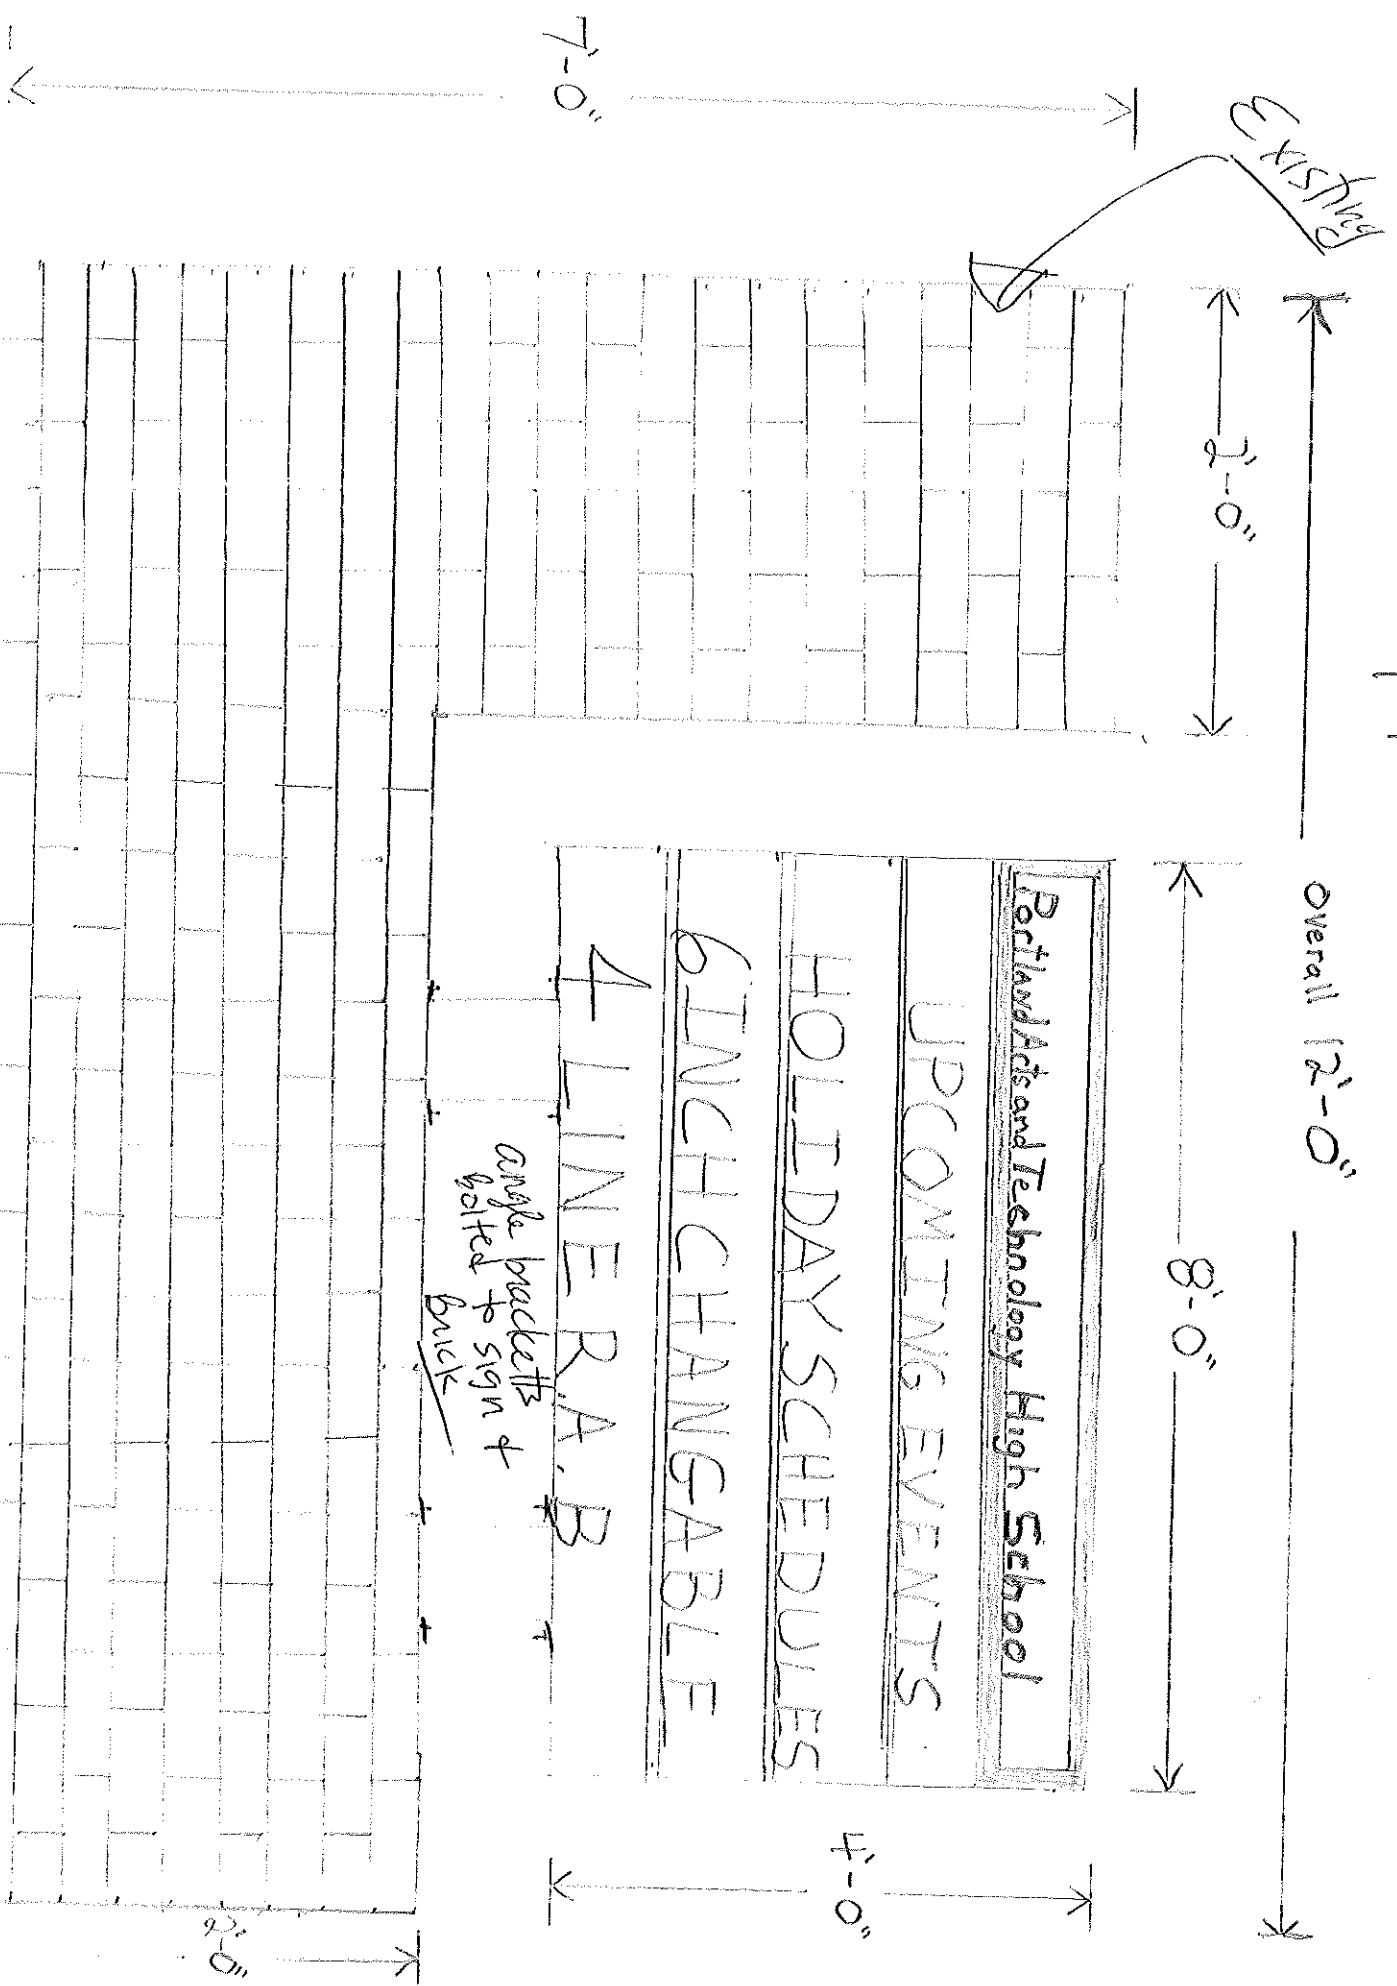 Existing
overall 12'-0"
2'-0"
8'-0"
7'-0"
Portland Arts and Technology High School
UPCOMING EVENTS
HOLIDAY SCHEDULES
6 INCH CHANGABLE
4 LINE R.A.B
4'-0"
angle bracketts
bolted to sign +
brick
2'-0"